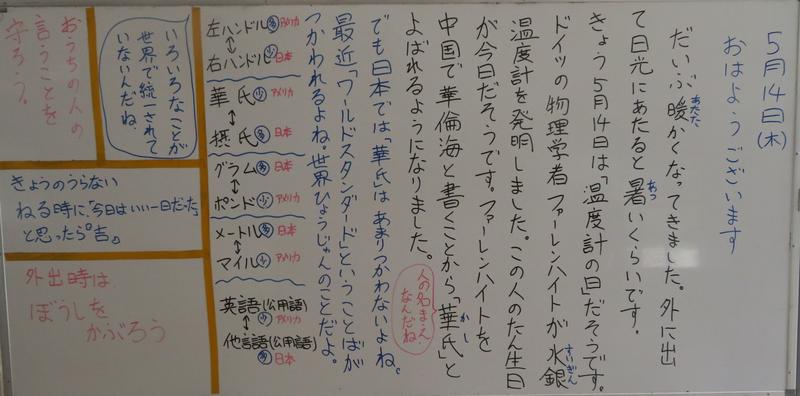 5月14日(木)
おはようございます
だいぶ暖かくなってきました。外に出
あたた
て日光にあたると暑いくらいです。
あつ
きょう5月14日は「温度計の日」だそうです。
ドイツの物理学者ファーレンハイトが水銀
すいぎん
温度計を発明しました。この人のたん生日
が今日だそうです。ファーレンハイトを
中国で華倫海と書くことから「華氏」と
かし
よばれるようになりました。
人の名まえ
なんだね
でも日本では「華氏」はあまりつかわないよね。
最近「ワールドスタンダード」ということばが
つかわれるよね。世界ひょうじゅんのことだよ。
左ハンドル 多 アメリカ
↕
右ハンドル 少 日本
華氏 少 アメリカ
↕
摂氏 多 日本
グラム 多 日本
↕
ポンド 少 アメリカ
メートル 多 日本
↕
マイル 少 アメリカ
英語(公用語)
少 アメリカ
↕
他言語(公用語)
多 日本
いろいろなことが
世界で統一されて
いないんだね。
おうちの人の
言うことを
守ろう。
きょうのうらない
ねる時に、「今日はいい一日だった」
と思ったら『吉』
外出時は
ぼうしを
かぶろう